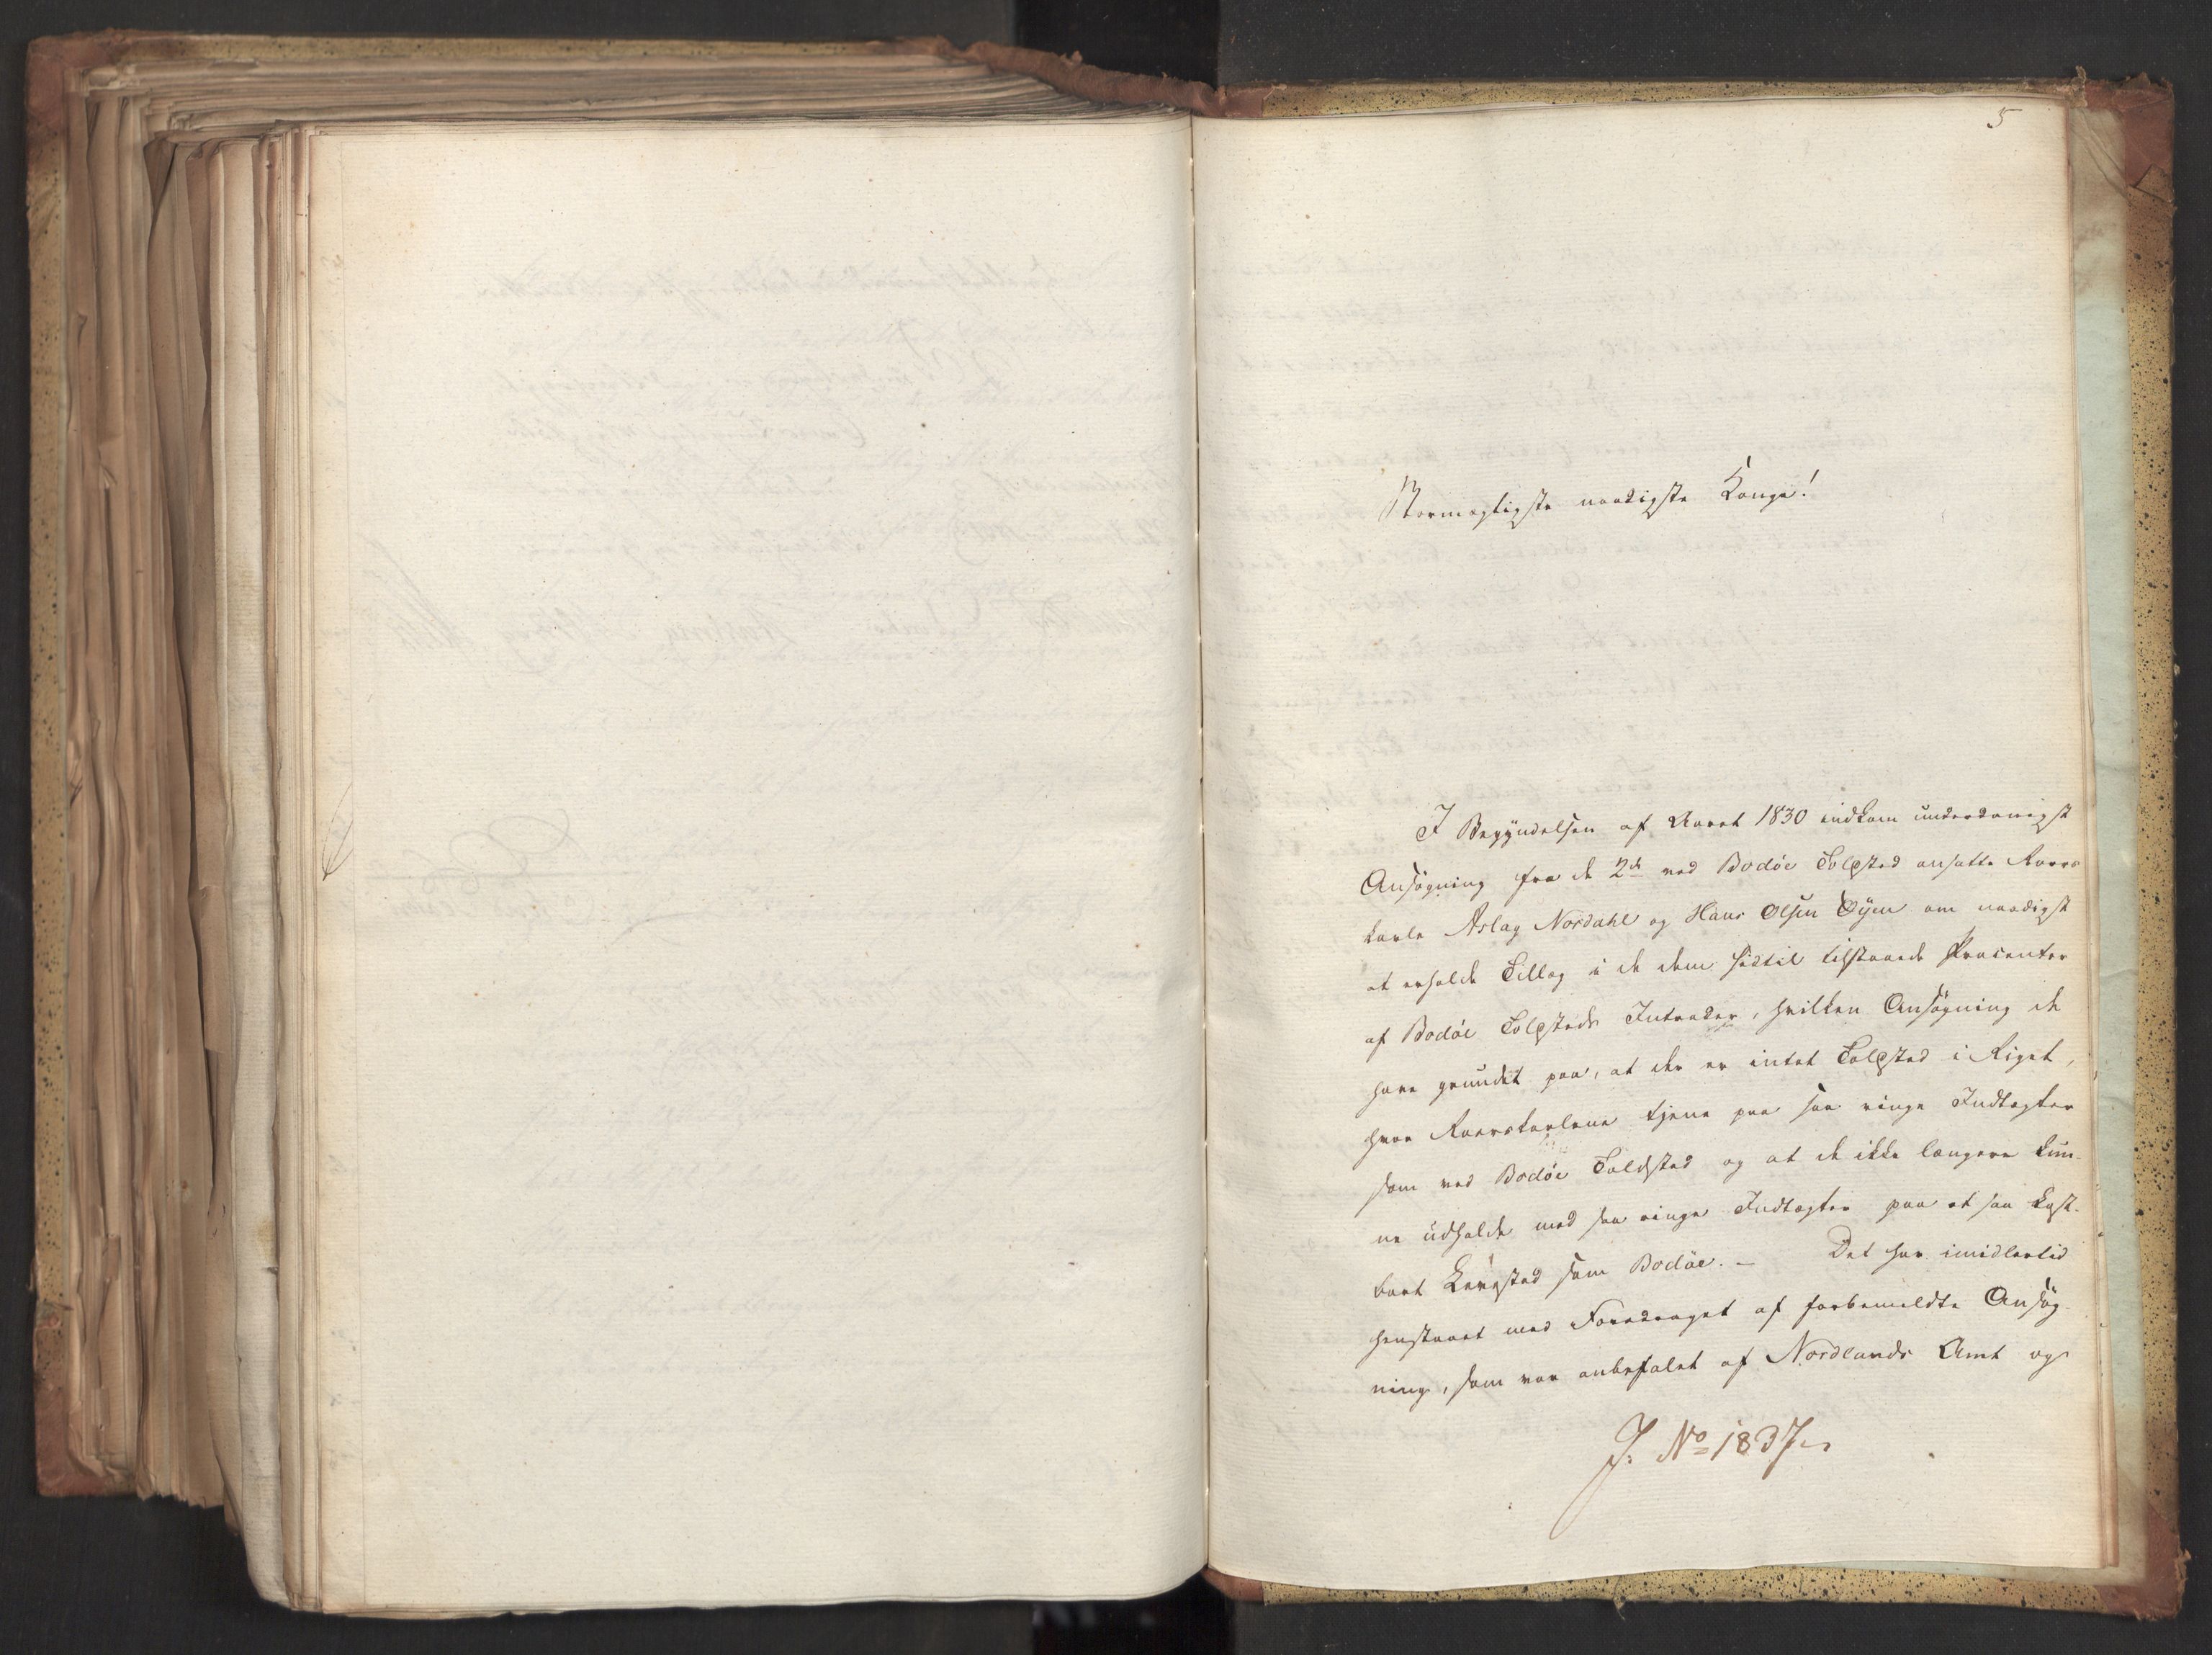 5
Stormægtigste naadigste Konge!
I Begyndelsen af Aaret 1830 indkom underdanigst
Ansøgning fra de 2de ved Bodøe Toldsted ansatte Roers-
karle Aslag Nordahl og Hans Olsen Øyen om naadigst
at erholde Tillæg i de dem hidtil tilstaaede Procenter
af Bodøe Toldsteds Intrader, hvilken Ansøgning de
have grundet paa, at der er intet Toldsted i Riget,
hvor Roerskarlene tjene paa saa ringe Indtægter
som ved Bodøe Toldsted og at de ikke længere kun-
ne udholde med saa ringe Indtægter paa et saa kost-
bart Levested som Bodøe. – Det har imidlertid
henstaaet med Foredraget af forbemeldte Ansøg-
ning, som var anbefalet af Nordlands Amt og
J. No 1837